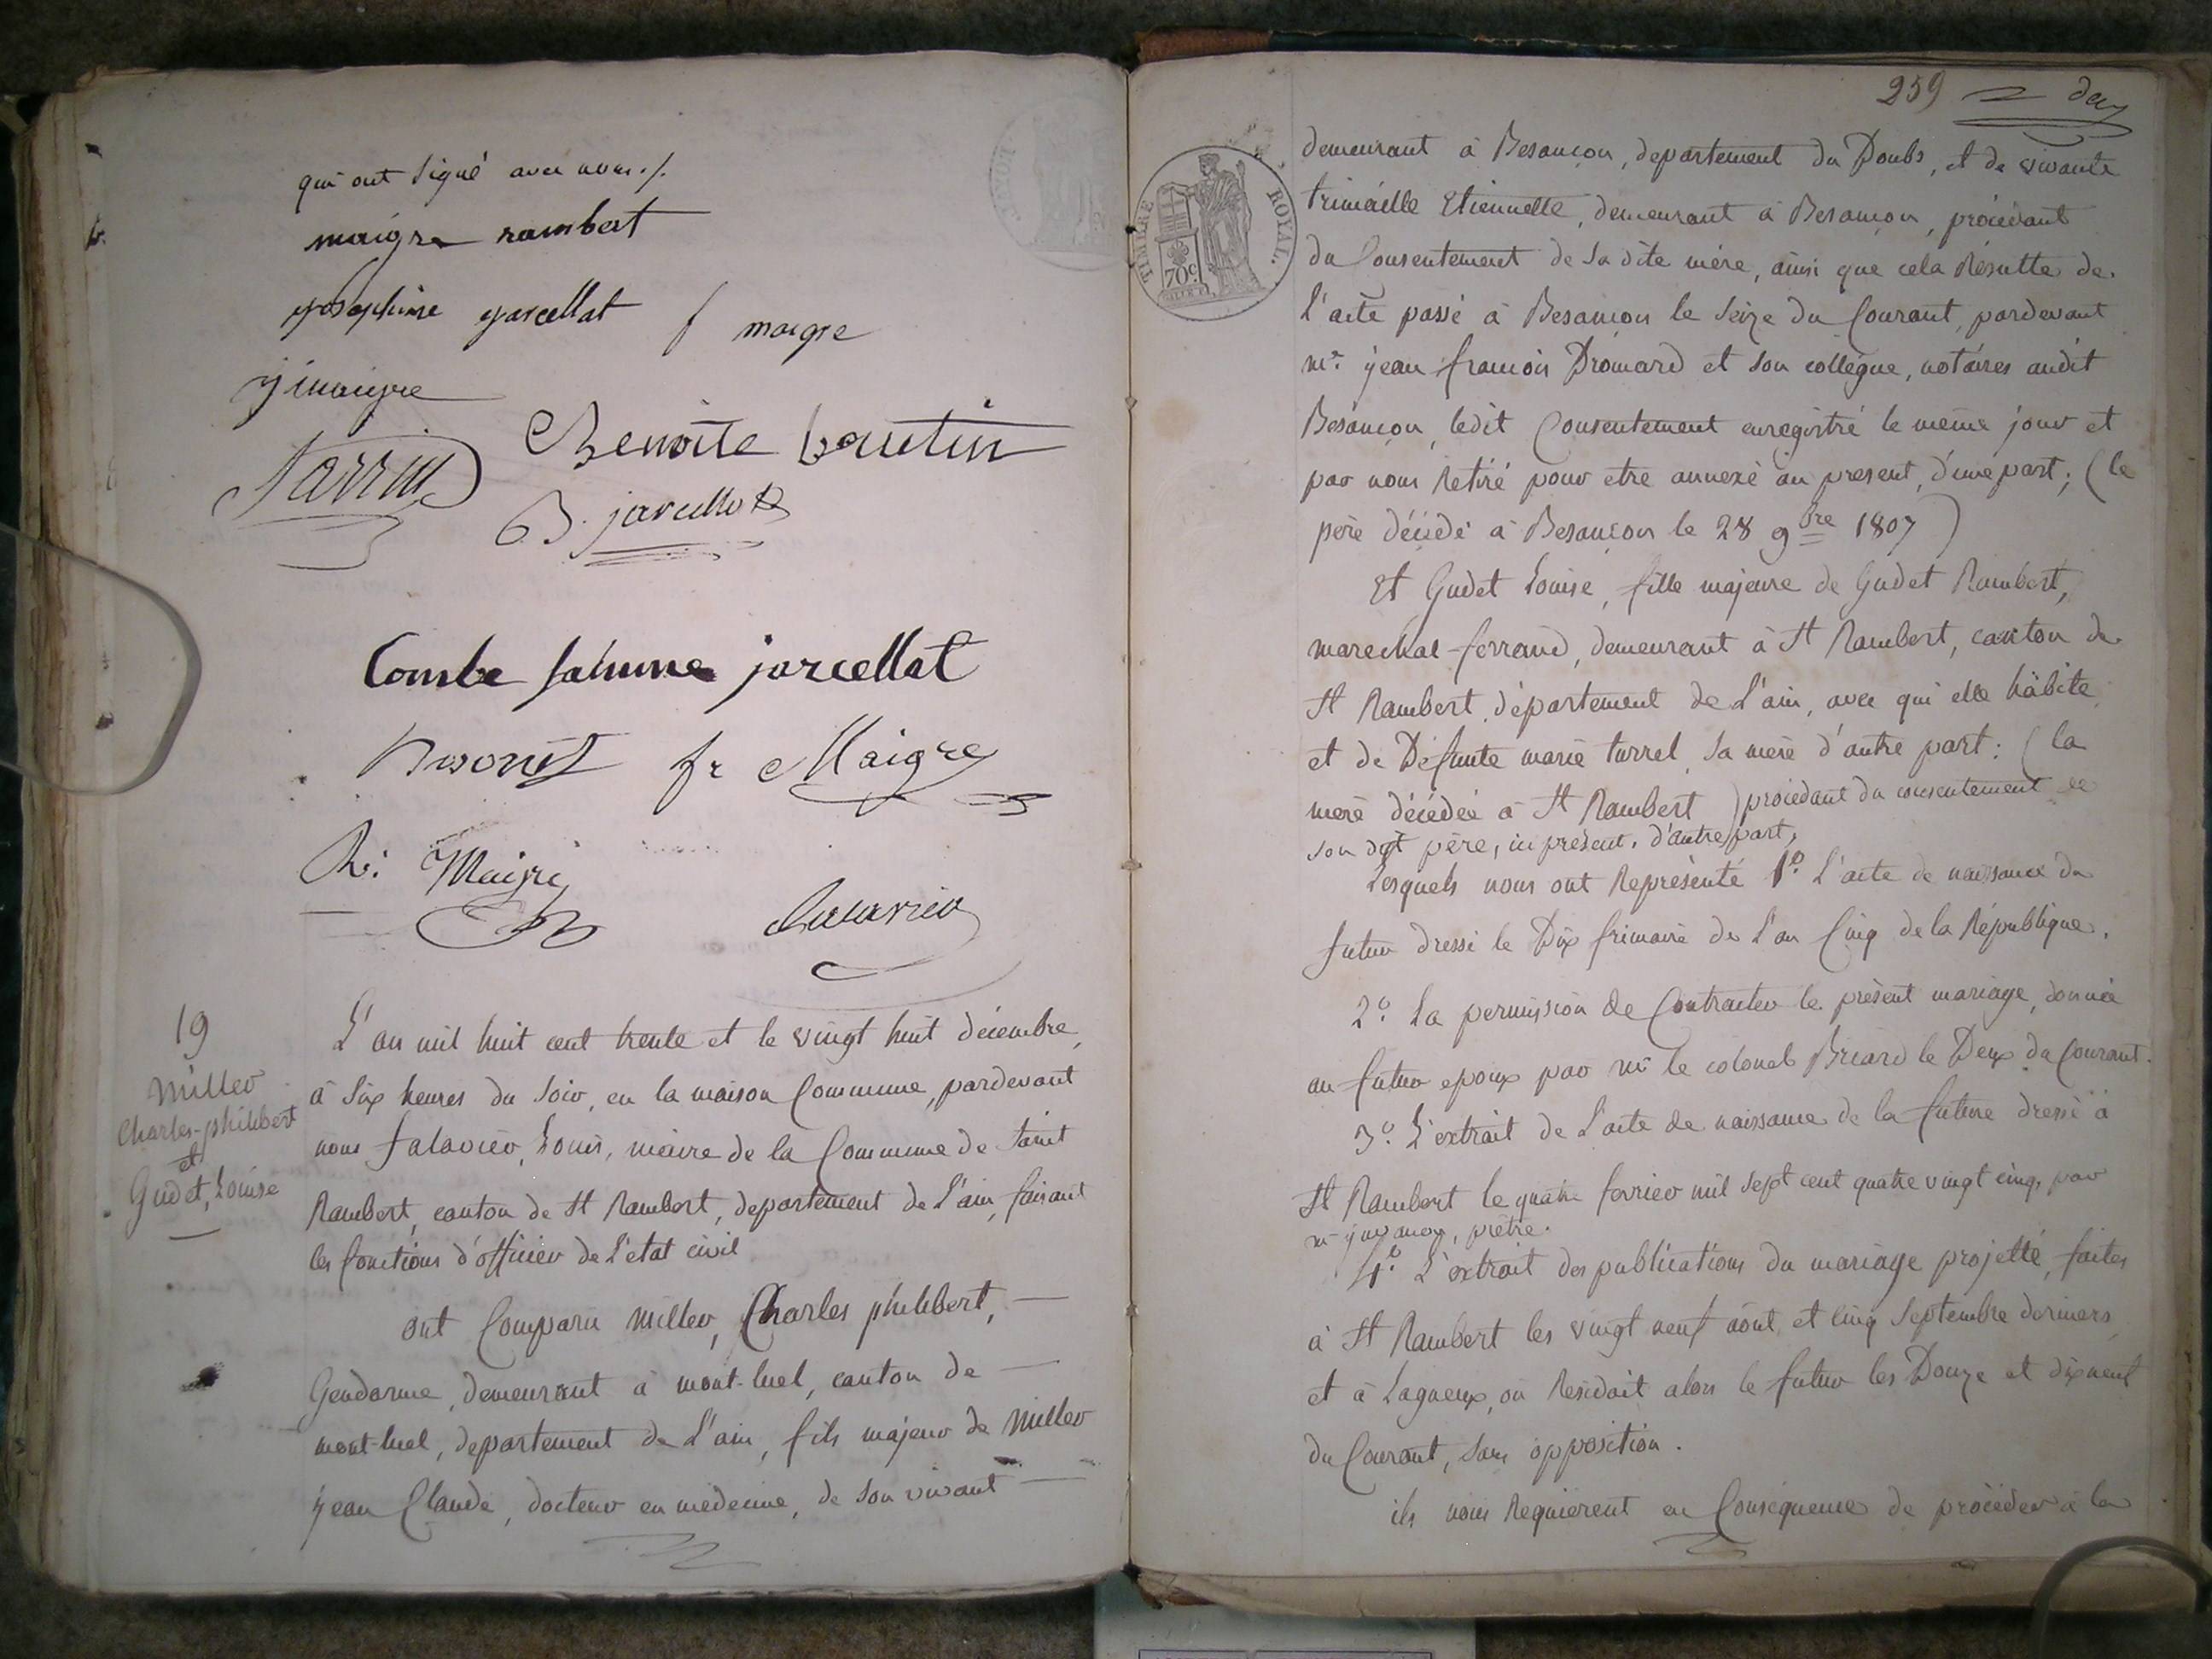 qui ont signé avec nous ./.
maigre rambert
josephine jarcellat f maigre
j maigre
Benoite
B. jarcellat
Combe femme jarcellat
fr Maigre
R. Maigre
19
Miller
Charles-philibert
et
Gudet, Louise
L'an mil huit cent trente et le vingt huit décembre,
à six heures du soir, en la maison Commune, pardevant
nous falavier, Louis, maire de la Commune de saint
Rambert, canton de St Rambert, departement de L'ain, faisant
les fonctions d'officier de L'etat civil
ont Comparu Miller, Charles philibert,
Gendarme, demeurant à mont-luel, canton de
mont-luel, departement de L'ain, fils majeur de Miller
jean Claude, docteur en médecine, de son vivant
259 deux
demeurant à Besançon, departement du Doubs, et de vivante
trimaille Etiennette, demeurant à Besançon, procédant
du Consentement de sa dite mère, ainsi que cela Résulte de
L'acte passé à Besançon le seize du Courant, pardevant
mr. jean françois Dromard et son collègue, notaires audit
Besançon, ledit Consentement enregistré le même jour et
par nous Retiré pour etre annexé au present, d'une part; (le
père décédé à Besançon le 28 9bre 1807)
Et Gudet Louise, fille majeure de Gudet Rambert,
marechal-ferrand, demeurant à St Rambert, canton de
St Rambert, département de L'ain, avec qui elle habite
et de Défunte marie turrel, sa mère d'autre part: (la
mère décédée à St Rambert) procédant du consentement de
son dit père, ici présent, d'autre part,
Lesquels nous ont Représenté 1o. L'acte de naissance du
futur dressé le Dix frimaire de L'an Cinq de la République.
2o. La permission de Contracter le présent mariage, donnée
au futur epoux par mr le colonel Briard le Deux du Courant.
3o. L'extrait de L'acte de naissance de la future dressé à
St Rambert le quatre fevrier mil sept cent quatre vingt cinq, par
mr, prêtre.
4o. L'extrait des publications du mariage projetté, faites
à St Rambert les vingt neuf août, et cinq septembre derniers
et à Lagneux, où Residait alors le futur les Douze et dixneuf
du Courant, sans opposition.
ils nous Requièrent en Conséquence de procéder à la
TIMBRE ROYAL.
70c.